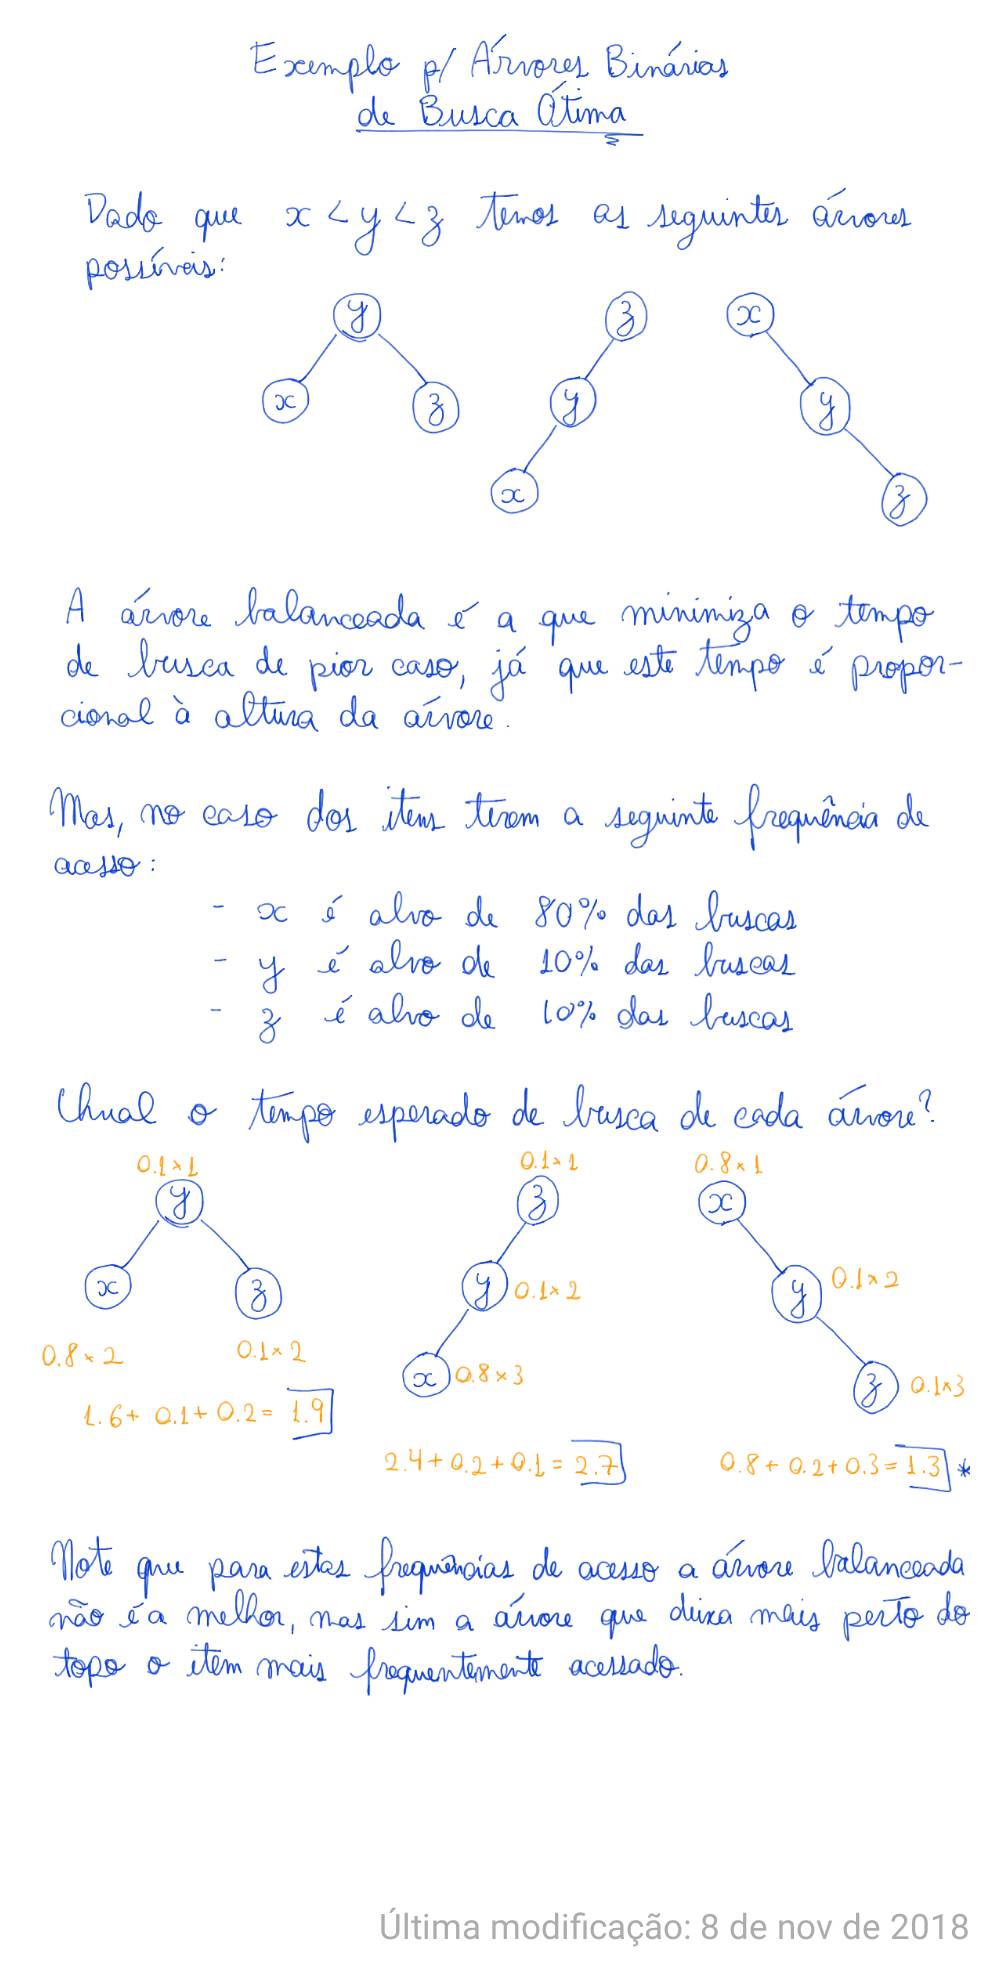 Exemplo p/ Árvores Binárias
de Busca Ótima
Dado que x < y < z temos as seguintes árvores
possíveis:
y
x
z
z
y
x
x
y
z
A árvore balanceada é a que minimiza o tempo
de busca de pior caso, já que este tempo é propor-
cional à altura da árvore.
Mas, no caso dos itens terem a seguinte frequência de
acesso:
- x é alvo de 80% das buscas
- y é alvo de 10% das buscas
- z é alvo de 10% das buscas
Qual o tempo esperado de busca de cada árvore?
0.1 × 1
y
x
z
0.8 × 2
0.1 × 2
1.6 + 0.1 + 0.2 = 1.9
0.1 × 1
z
y 0.1 × 2
x 0.8 × 3
2.4 + 0.2 + 0.1 = 2.7
0.8 × 1
x
y 0.1 × 2
z 0.1 × 3
0.8 + 0.2 + 0.3 = 1.3 *
Note que para estas frequências de acesso a árvore balanceada
não é a melhor, mas sim a árvore que deixa mais perto do
topo o item mais frequentemente acessado.
Última modificação: 8 de nov de 2018